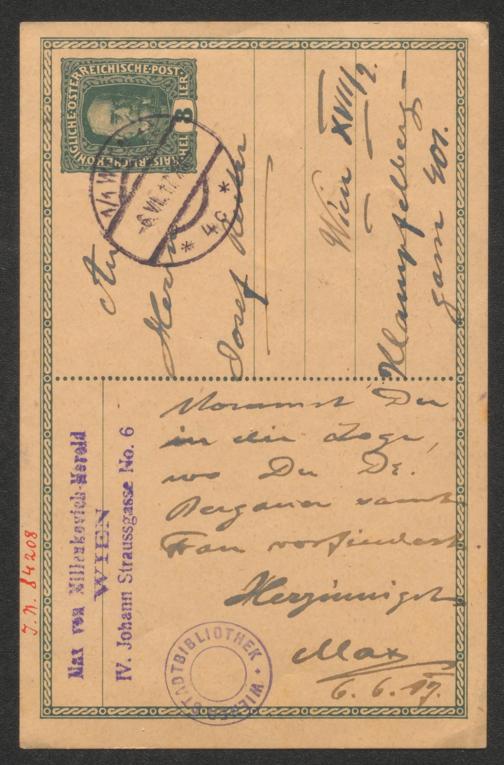 KAISERLICHE KÖNIGLICHE ÖSTERREICHISCHE POST
8
4 d
An
Herrn
Josef Reiter
Wien XVIII/2.
Klampfelberg-
gasse 401.
Max von Millenkovich-Morold
WIEN
IV. Johann Straussgasse No. 6
Du
in die Loge,
wo Du Dr.
Bergauer samt
Frau vorfindest.
Herzinnigst
Max
6. 6. 17.
WIENER STADTBIBLIOTHEK
J. N. 84208